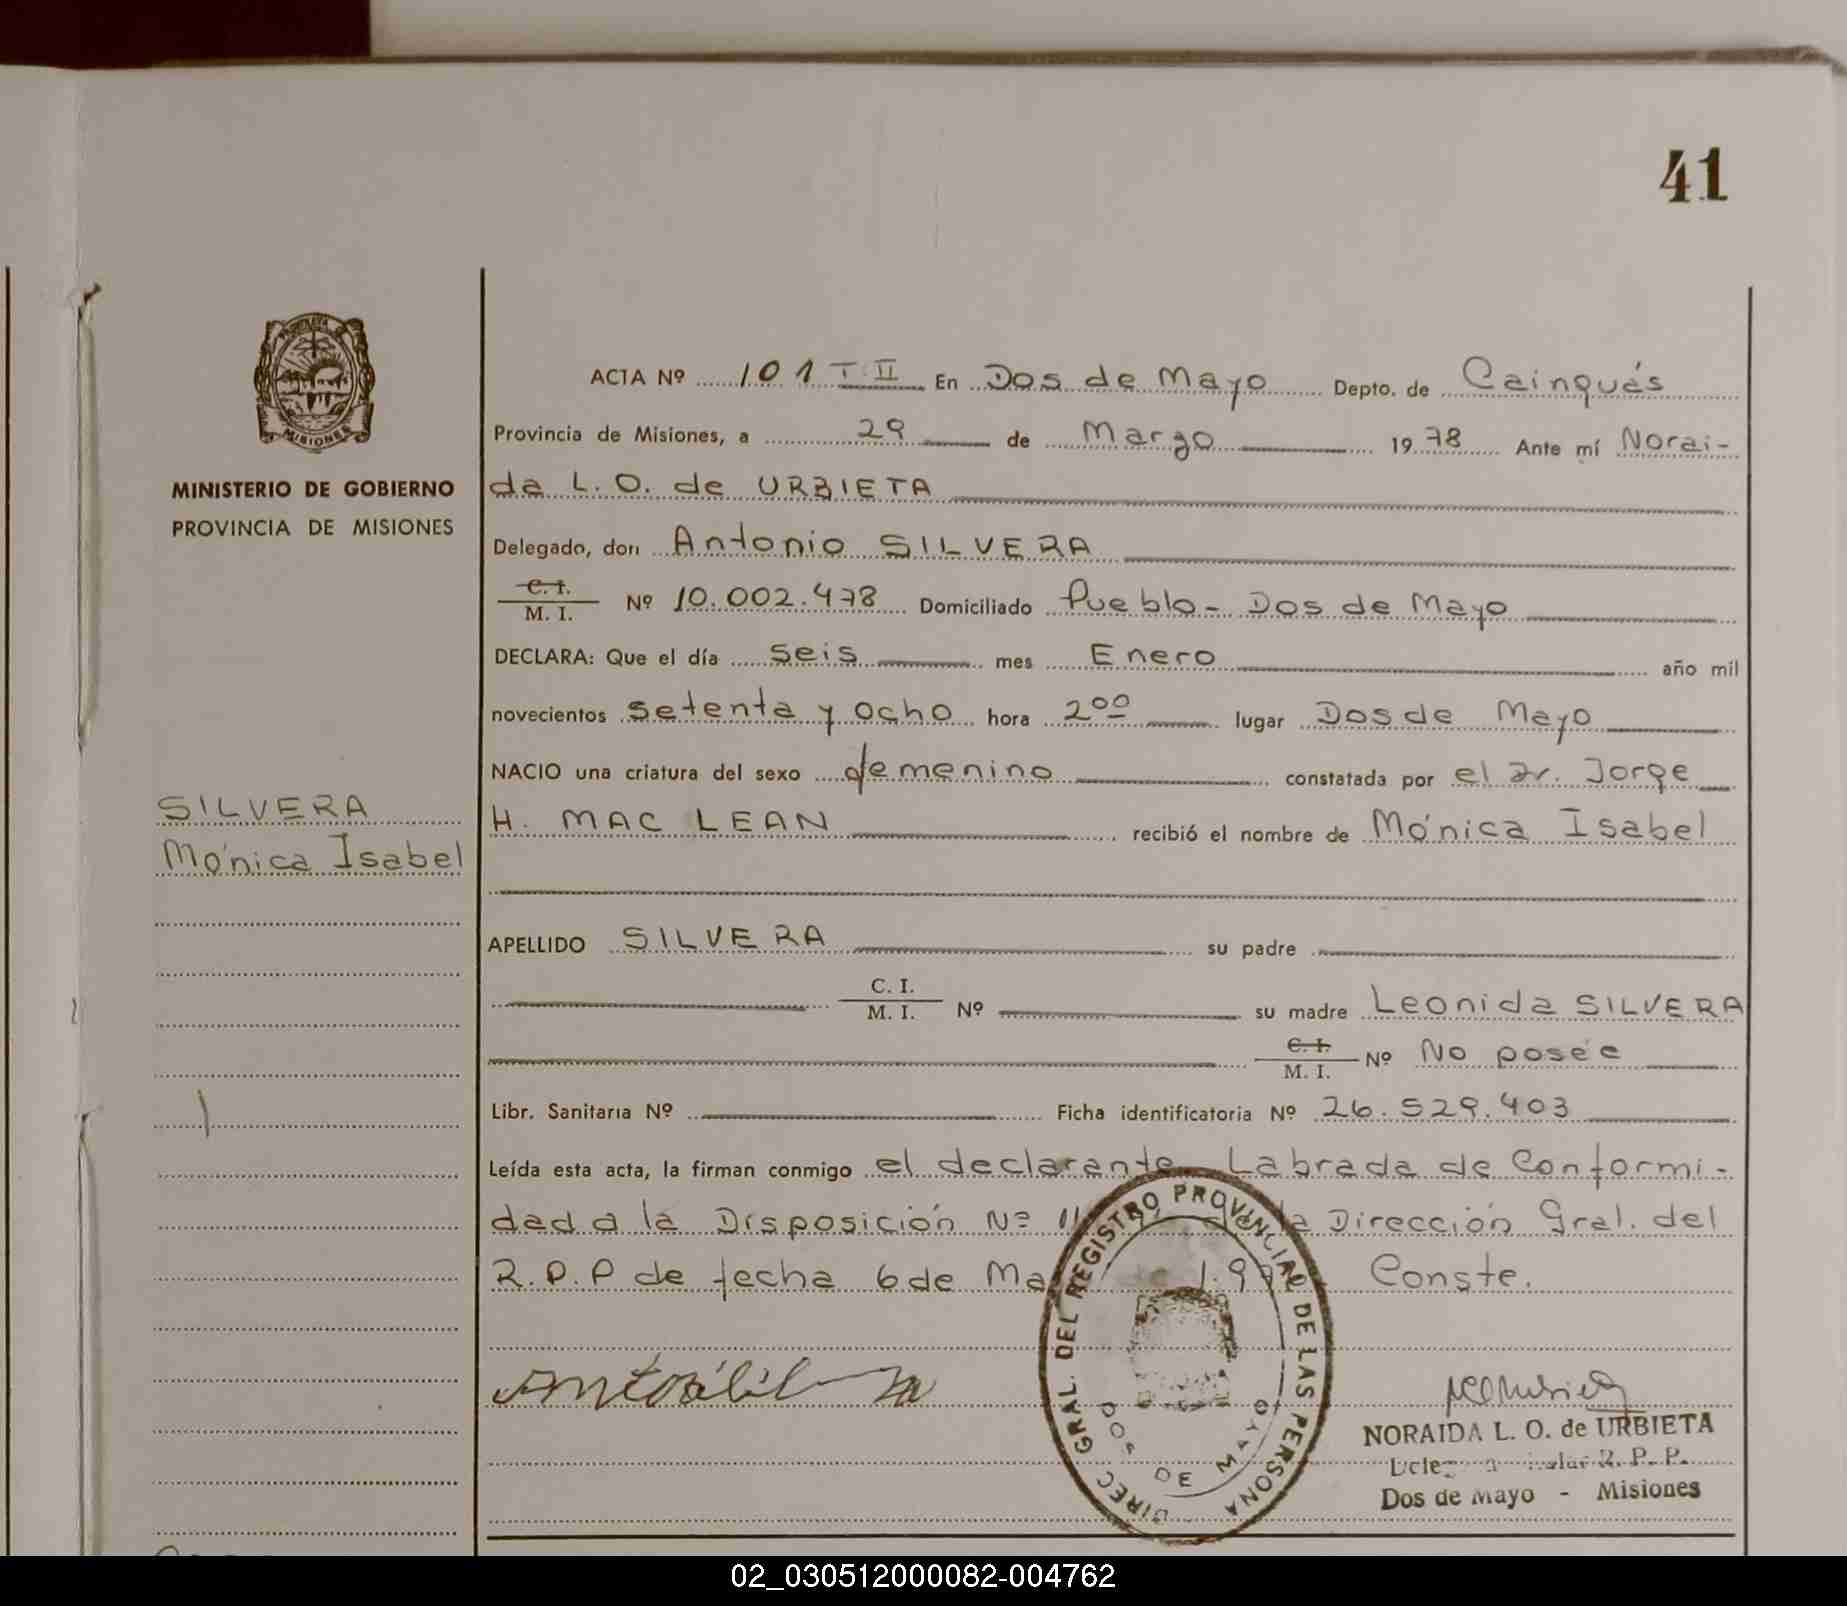 41
MISIONES
MINISTERIO DE GOBIERNO
PROVINCIA DE MISIONES
SILVERA
Mónica Isabel
ACTA Nº 101 T II En Dos de Mayo Depto. de Cainguás
Provincia de Misiones, a 29 de Marzo 1978 Ante mí Norai-
da L. O. de URBIETA
Delegado, don Antonio SILVERA
C. I.
M. I. Nº 10.002.478 Domiciliado Pueblo - Dos de Mayo
DECLARA: Que el día seis mes Enero año mil
novecientos setenta y ocho hora 2ºº lugar Dos de Mayo
NACIO una criatura del sexo femenino constatada por el Dr. Jorge
H. MAC LEAN recibió el nombre de Mónica Isabel
APELLIDO SILVERA su padre
C. I.
M. I. Nº su madre Leonida SILVERA
C. I.
M. I. Nº No poseé
Libr. Sanitaria Nº Ficha identificatoria Nº 26.529.403
Leída esta acta, la firman conmigo el declarante. Labrada de Conformi-
dad a la Disposición Nº de la Dirección Gral. del
R.P.P de fecha 6 de Conste.
DIREC GRAL. DEL REGISTRO PROVINCIAL DE LAS PERSONA
DOS DE MAYO
NORAIDA L. O. de URBIETA
R. P. P.
Dos de Mayo - Misiones
02_030512000082-004762